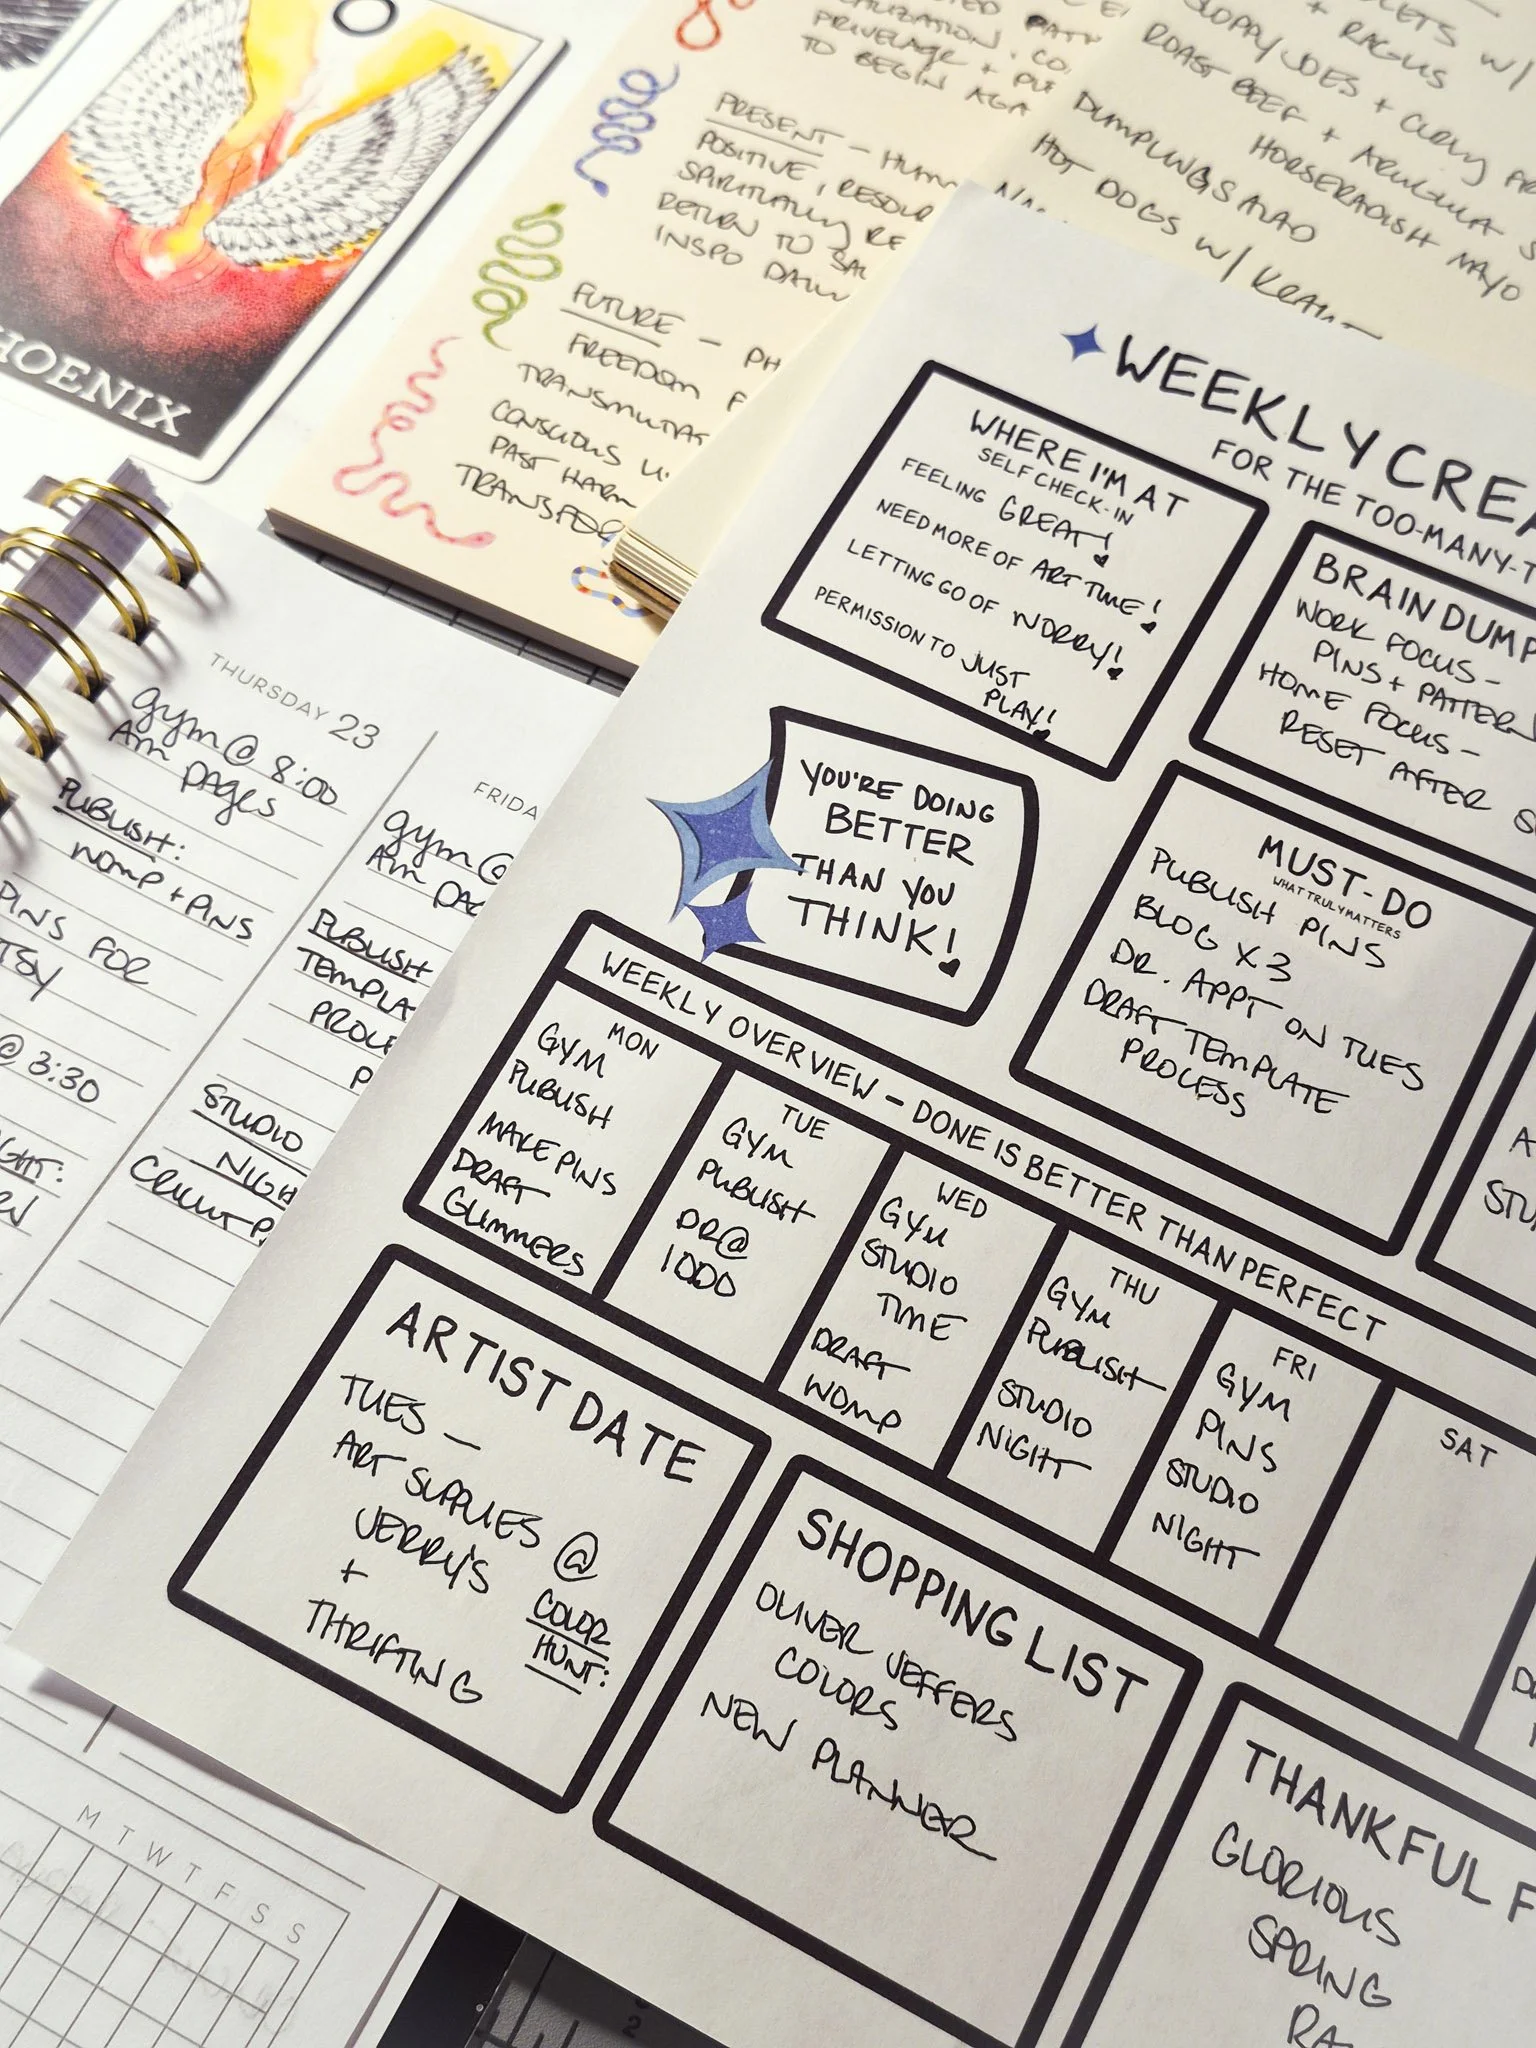 PRIVELAGE +
TO BEGIN
PRESENT –
POSITIVE,
SPIRITUALLY
RETURN TO
INSPO
FUTURE –
FREEDOM
CONSCIOUS
PAST HARM
SLOPPY JOES + CURLY
ROAST BEEF + ARUGULA
HORSERADISH MAYO
DUMPLINGS
HOT DOGS W/
THURSDAY 23
gym @ 8:00
AM PAGES
PUBLISH:
WOMP + PINS
PINS FOR
@ 3:30
gym @
AM
PUBLISH
STUDIO
WEEKLY
FOR THE TOO-MANY-
WHERE I'M AT
SELF CHECK-IN
FEELING GREAT!
NEED MORE OF ART TIME!
LETTING GO OF WORRY!
PERMISSION TO JUST
PLAY!
BRAIN DUMP
WORK FOCUS –
PINS + PATTERN
HOME FOCUS –
RESET AFTER
YOU'RE DOING
BETTER
THAN YOU
THINK!
MUST-DO
WHAT TRULY MATTERS
PUBLISH PINS
BLOG X 3
DR. APPT ON TUES
DRAFT TEMPLATE
PROCESS
WEEKLY OVERVIEW – DONE IS BETTER THAN PERFECT
MON
GYM
PUBLISH
MAKE PINS
DRAFT
GLIMMERS
TUE
GYM
PUBLISH
DR @
1000
WED
GYM
STUDIO
TIME
DRAFT
WOMP
THU
GYM
PUBLISH
STUDIO
NIGHT
FRI
GYM
PINS
STUDIO
NIGHT
SAT
ARTIST DATE
TUES –
ART SUPPLIES @
JERRY'S
+
THRIFTING
COLOR
HUNT:
SHOPPING LIST
OLIVER JEFFERS
COLORS
NEW PLANNER
THANKFUL
GLORIOUS
SPRING
M T W T F S S
2